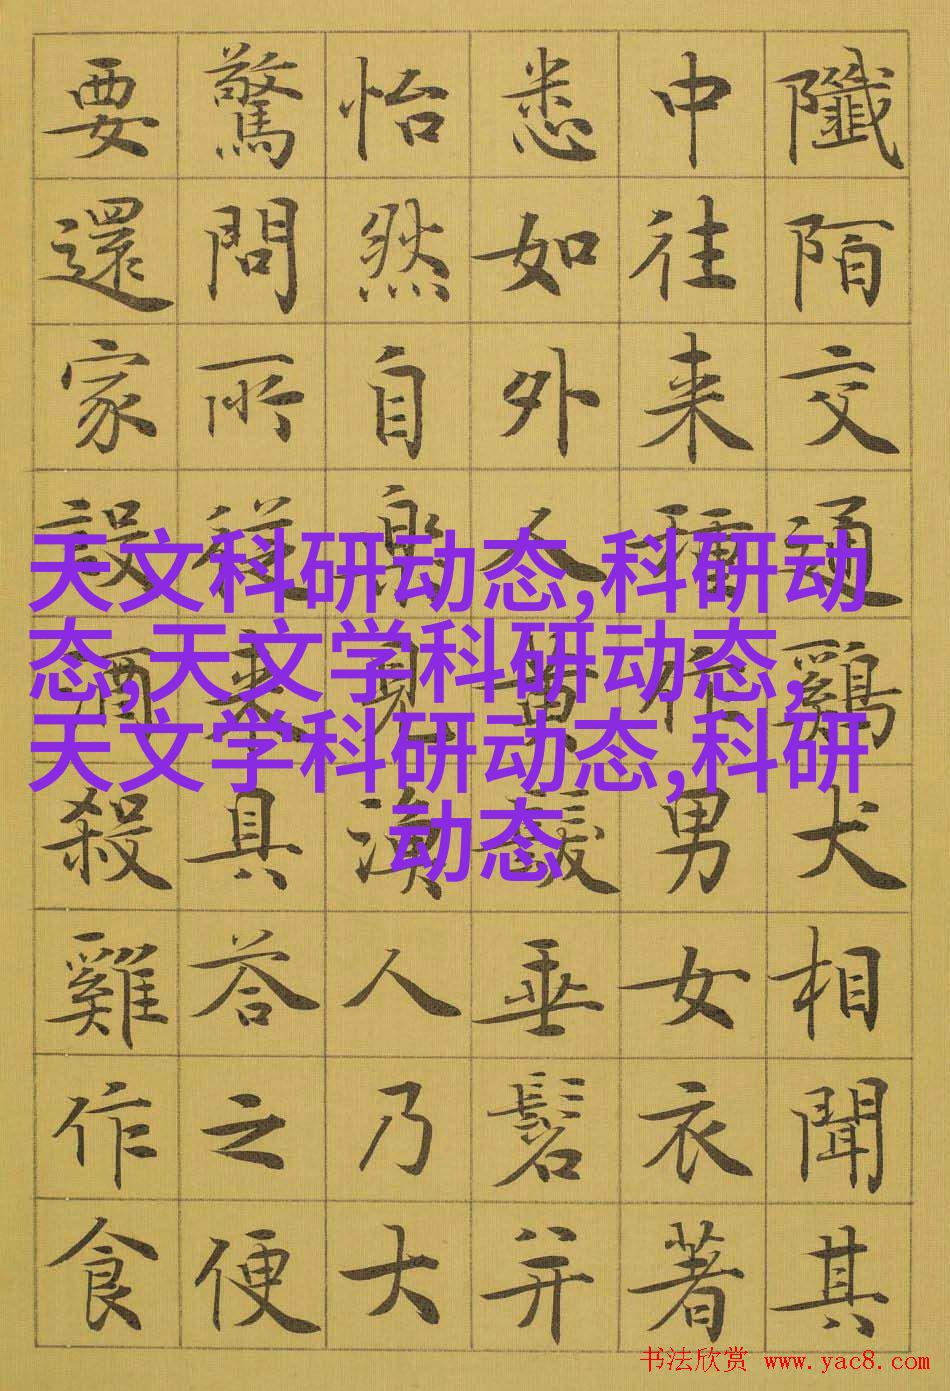 陌交通鷄犬相聞其
中往来種作男女衣著
悉如外人黄髮垂髫并
怡然自樂見漁人乃大
驚問所從来具答之便
要還家設酒殺雞作食
天文科研动态,科研动
态,天文学科研动态,
天文学科研动态,科研
动态
书法欣赏 www.yac8.com